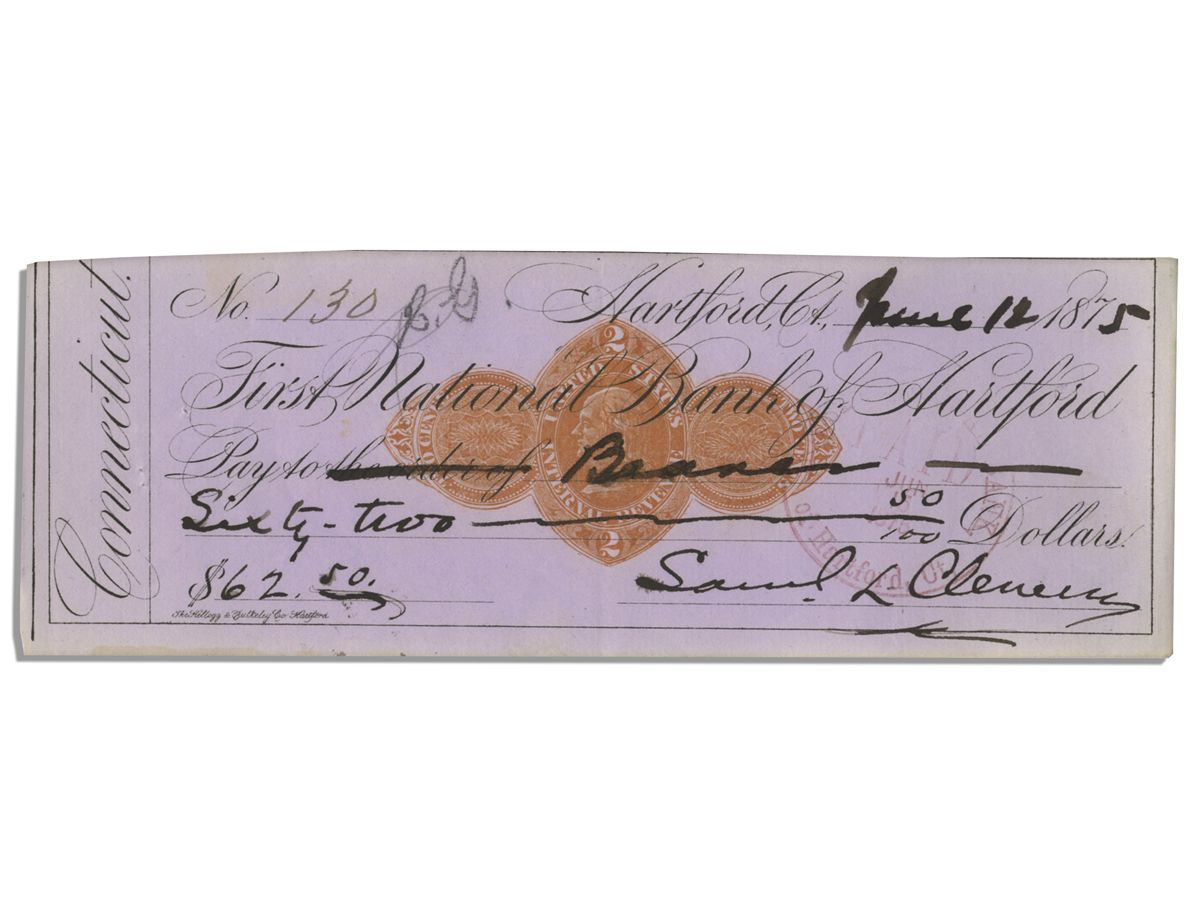 Connecticut.
No. 130 Hartford, Ct., June 12 1875
First National Bank of Hartford
Pay to the order of Bearer
Sixty-two 50/100 Dollars.
$62.50.
Saml. L Clemens
The Kellogg & Bulkeley Co. Hartford
2
UNITED STATES
INTERNAL REVENUE
2
PAID
JUN
of Hartford, Ct.